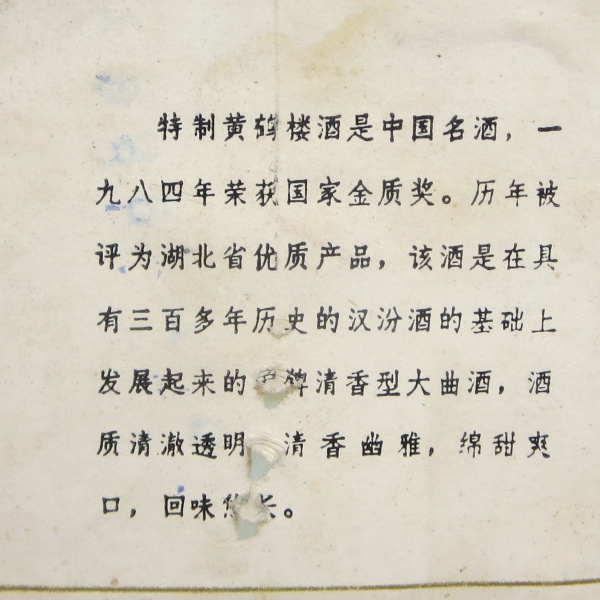 特制黄鹤楼酒是中国名酒，一
九八四年荣获国家金质奖。历年被
评为湖北省优质产品，该酒是在具
有三百多年历史的汉汾酒的基础上
发展起来的名牌清香型大曲酒，酒
质清澈透明 清香幽雅，绵甜爽
口，回味悠长。